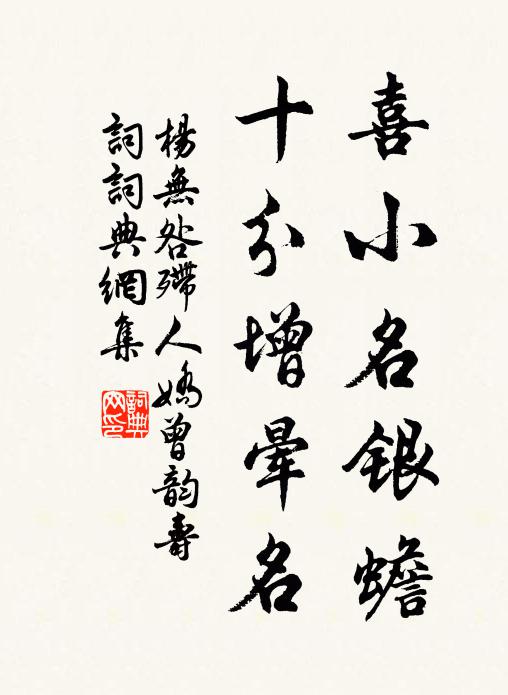 喜小名銀蟾
十分增暈名
楊無咎殢人嬌曾韵壽
詞詞典網集
詞典
网印